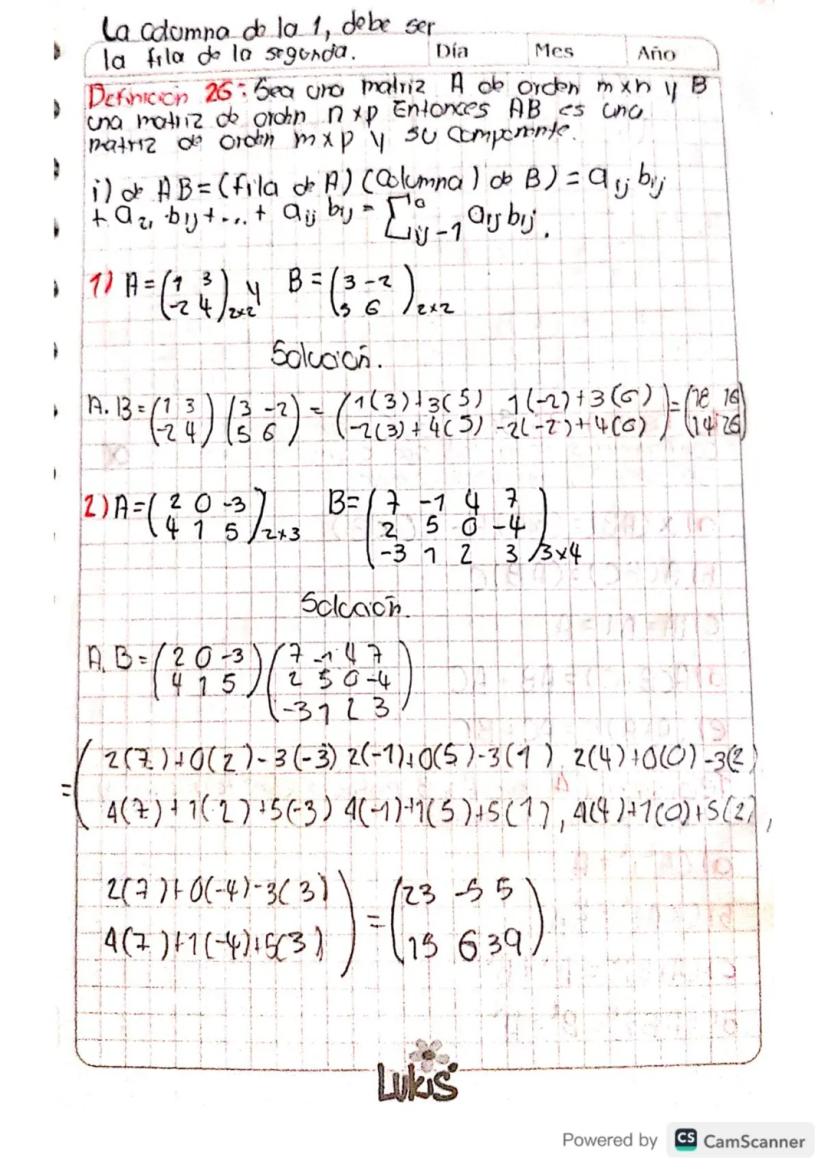 La columna de la 1, debe ser
la fila de la segunda.
Día Mes Año
Definición 26: Sea una matriz A de orden m x n y B
una matriz de orden n x p Entonces AB es una
matriz de orden m x p y su componente.
i) de AB = (fila de A) (Columna) de B) = a ij bij
+ a2, bij + ... + aij bij = ∑ ij-1 aij bij.
1) A = (1 3 / -2 4) 2x2 y B = (3 -2 / 5 6) 2x2
Solución.
A. B = (1 3 / -2 4) (3 -2 / 5 6) = (1(3)+3(5) 1(-2)+3(6) / -2(3)+4(5) -2(-2)+4(6)) = (18 16 / 14 28)
2) A = (2 0 -3 / 4 1 5) 2x3 B = (7 -1 4 7 / 2 5 0 -4 / -3 1 2 3) 3x4
Solución.
A. B = (2 0 -3 / 4 1 5) (7 -1 4 7 / 2 5 0 -4 / -3 1 2 3)
= ( 2(7)+0(2)-3(-3) 2(-1)+0(5)-3(1) 2(4)+0(0)-3(2)
4(7)+1(2)+5(-3) 4(-1)+1(5)+5(1), 4(4)+1(0)+5(2),
2(7)+0(-4)-3(3) ) = (23 -5 5
4(7)+1(-4)+5(3) ) 15 6 39)
LUKIS
Powered by CS CamScanner